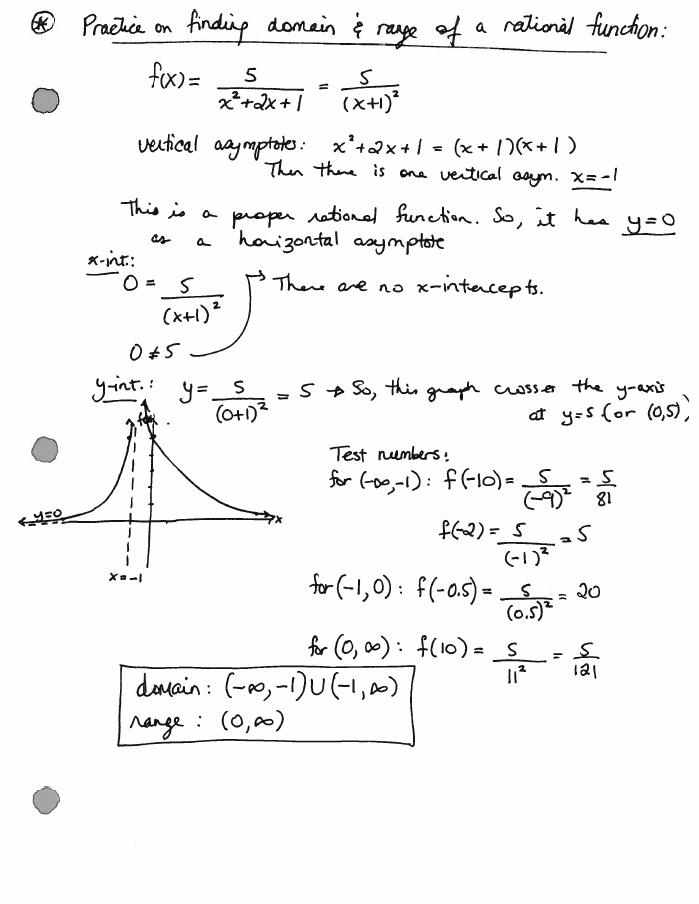 ⊛ Practice on finding domain & range of a rational function:
f(x) = 5/(x²+2x+1) = 5/(x+1)²
vertical asymptotes: x²+2x+1 = (x+1)(x+1)
Then there is one vertical asym. x=-1
This is a proper rational function. So, it has y=0
as a horizontal asymptote
x-int.:
0 = 5/(x+1)² → There are no x-intercepts.
0 ≠ 5
y-int.: y = 5/(0+1)² = 5 → So, this graph crosses the y-axis
at y=5 (or (0,5))
y=0
x
x=-1
Test numbers:
for (-∞,-1): f(-10) = 5/(-9)² = 5/81
f(-2) = 5/(-1)² = 5
for (-1,0): f(-0.5) = 5/(0.5)² = 20
for (0,∞): f(10) = 5/11² = 5/121
domain: (-∞,-1)∪(-1,∞)
range: (0,∞)